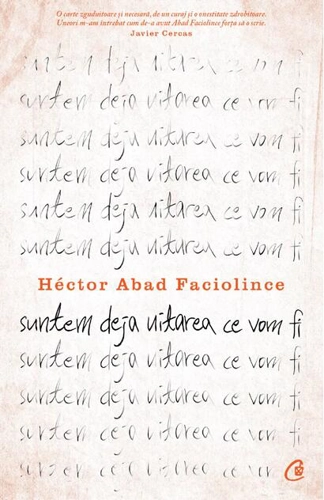 O carte zguduitoare și necesară, de un curaj și o onestitate zdrobitoare.
Uneori m-am întrebat cum de-a avut Abad Faciolince forța să o scrie.
Javier Cercas
suntem deja uitarea ce vom fi
suntem deja uitarea ce vom fi
suntem deja uitarea ce vom fi
suntem deja uitarea ce vom fi
suntem deja uitarea ce vom fi
suntem deja uitarea ce vom fi
Héctor Abad Faciolince
suntem deja uitarea ce vom fi
suntem deja uitarea ce vom fi
suntem deja uitarea ce vom fi
suntem deja uitarea ce vom fi
suntem deja uitarea ce vom fi
suntem deja uitarea ce vom fi